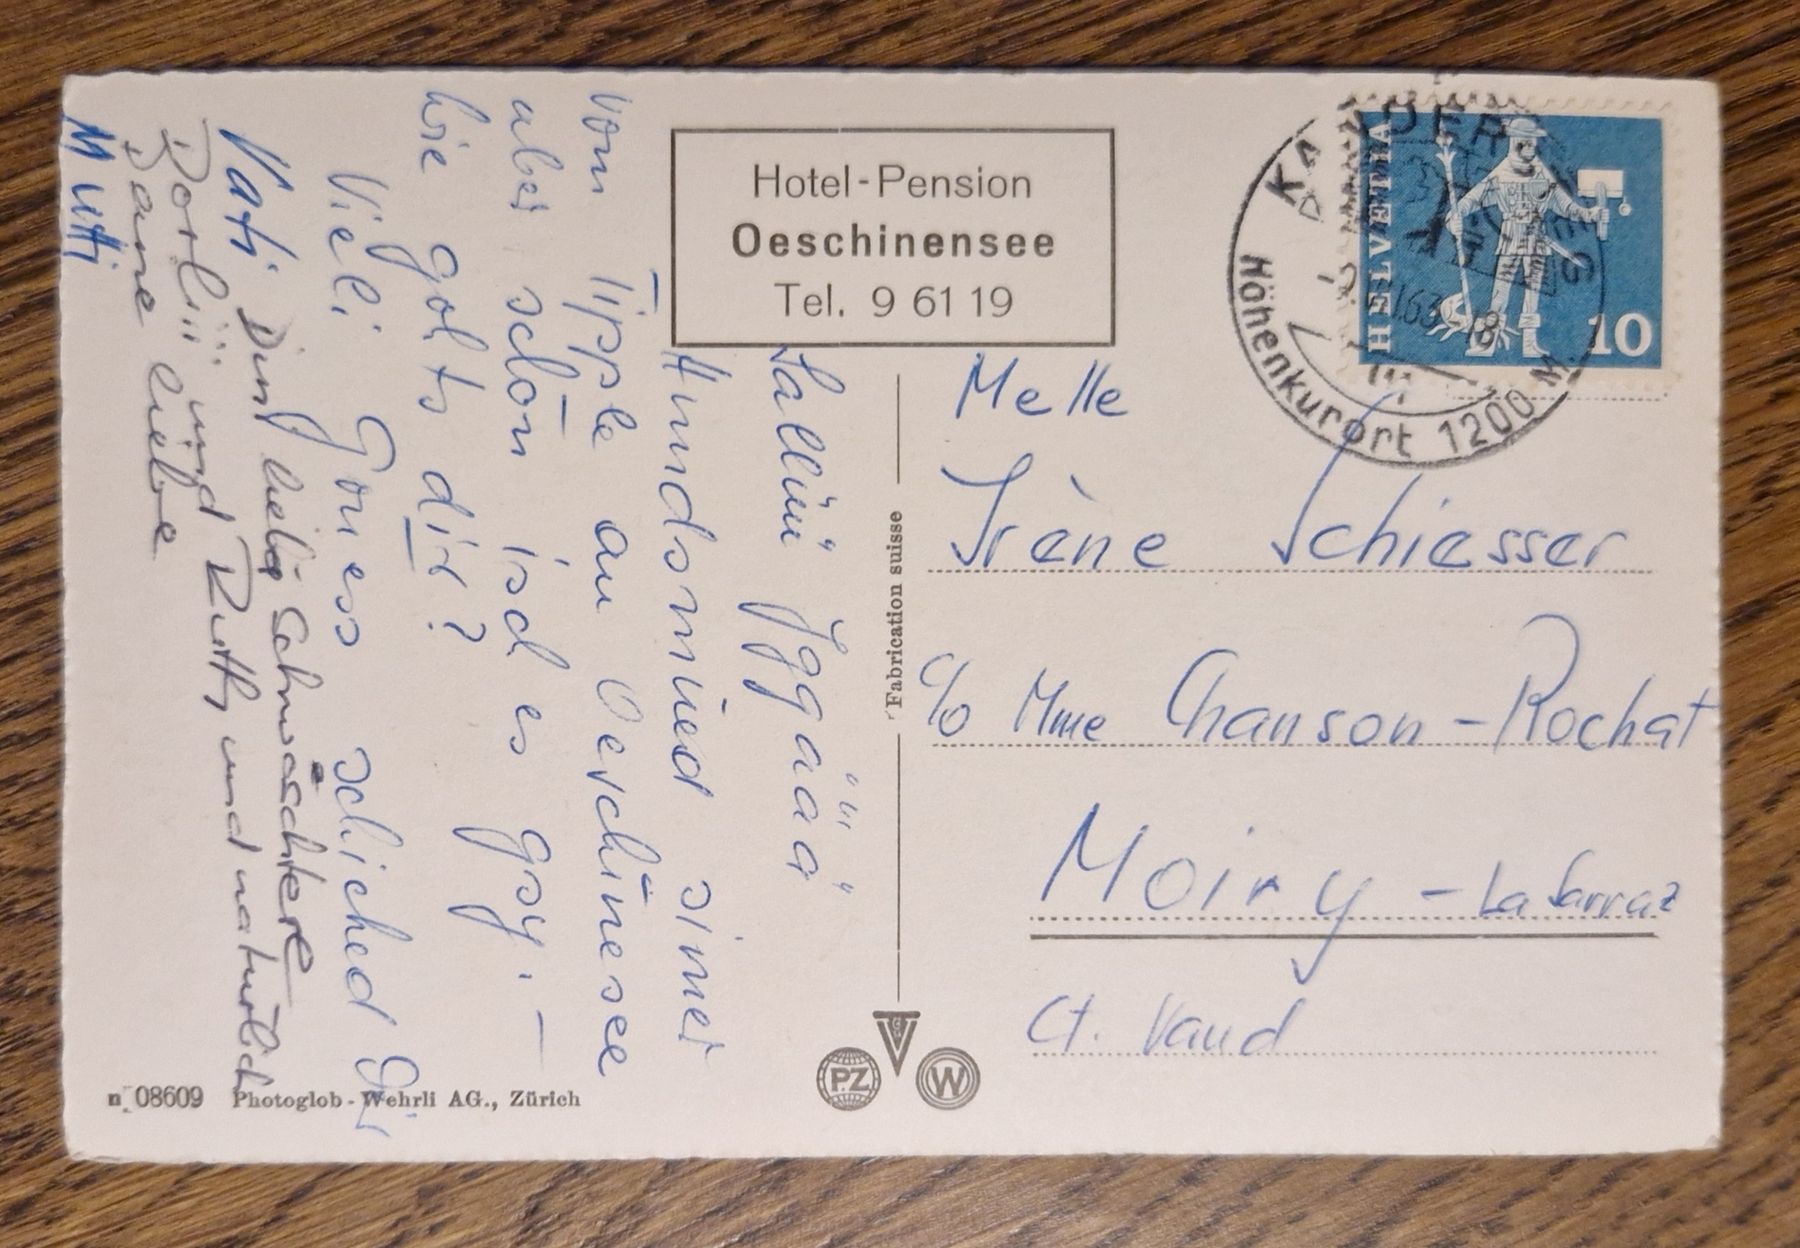 Hotel-Pension
Oeschinensee
Tel. 9 61 19
HELVETIA
10
KANDERSTEG
Höhenkurort 1200 M.
Sallüü Yggääa
Hundsmüed simer
vom Tipple am Oeschinesee
aber schön isch es gsy. —
Wie gohts dir?
Vieli Grüess schicked Dir
Vati Dini liebi Schwöschtere
Dorlii und Ruth und natürlich
Dane liebe
Mutti
Fabrication suisse
Melle
Iréne Schiesser
c/o Mme Chanson - Rochat
Moiry - La Sarraz
Ct. Vaud
n. 08609 Photoglob-Wehrli AG., Zürich
PZ
V
G
W